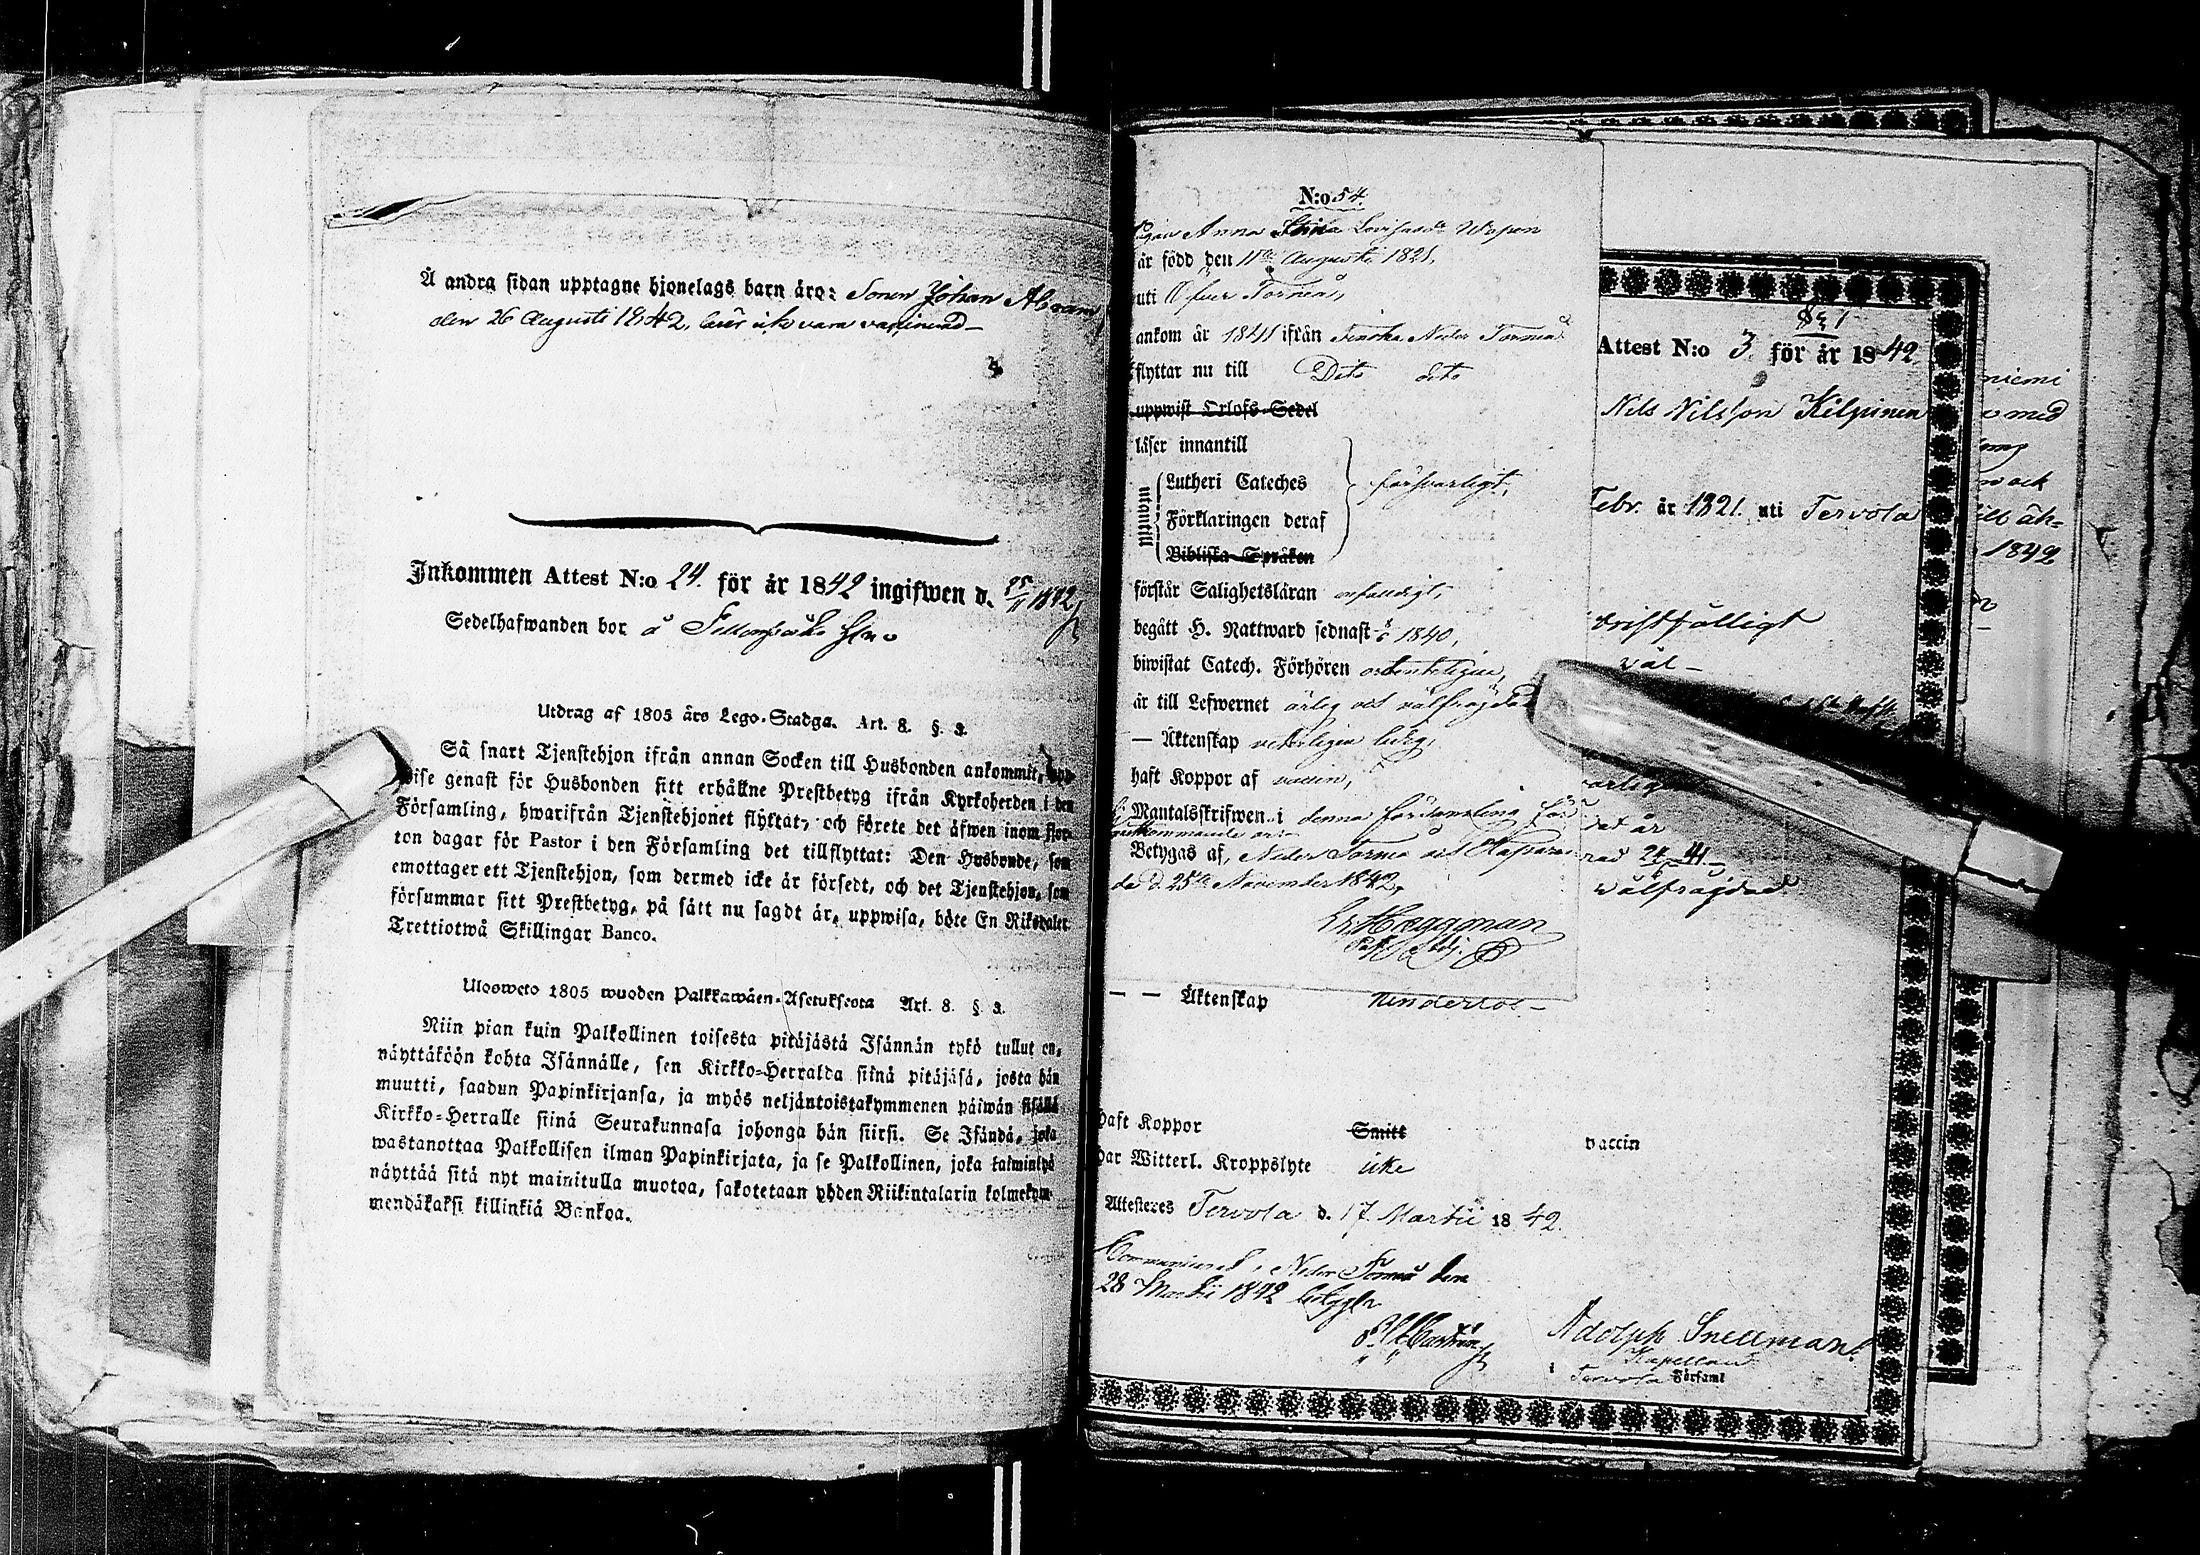 Å andra sidan upptagne hjonelags barn äro: Sonen Johan Abram
den 26 Augusti 1842, lärer icke vara vaccinerad
Inkommen Attest N:o 24. för år 1842 ingifwen d. 25/11 1842
Sedelhafwanden bor å
Utdrag af 1805 års Lego-Stadga. Art. 8. §. 3.
Så snart Tjenstehjon ifrån annan Socken till Husbonden ankommit, upp-
wise genast för Husbonden sitt erhållne Prestbetyg ifrån Kyrkoherden i den
Församling, hwarifrån Tjenstehjonet flyttat, och förete det äfwen inom fjor-
ton dagar för Pastor i den Församling det tillflyttat: Den Husbonde, som
emottager ett Tjenstehjon, som dermed icke är försedt, och det Tjenstehjon, som
försummar sitt Prestbetyg, på sätt nu sagdt är, uppwisa, böte En Riksdaler
Trettiotwå Skillingar Banco.
Ulosweto 1805 wuoden Palkkawäen-Asetuksesta Art. 8. §. 3.
Niin pian kuin Palkollinen toisesta pitäjästä Isännän tykö tullut on,
näyttäköön kohta Isännälle, sen Kirkko-Herralda siinä pitäjäsä, josta hän
muutti, saadun Papinkirjansa, ja myös neljäntoistakymmenen päiwän sisällä
Kirkko-Herralle siinä Seurakunnasa johonga hän siirsi. Se Isändä, joka
wastanottaa Palkollisen ilman Papinkirjata, ja se Palkollinen, joka laiminlyö
näyttää sitä nyt mainitulla muotoa, sakotetaan yhden Riikintalarin kolmekym-
mendäkaksi killinkiä Bankoa.
N:o 54.
Pigan Anna Stina Lovisasdr Wopen
är född den 11te Augusti 1821,
uti Öfver Torneå,
ankom år 1841 ifrån Finska Neder Torneå
flyttar nu till Dito dito
uppwist Orlofs-Sedel
läser innantill
utantill
Lutheri Cateches försvarligt,
Förklaringen deraf
Bibliska Språken
förstår Salighetsläran enfaldigt,
begått H. Nattward sednast 1840,
biwistat Catech. Förhören ordenteligen,
är till Lefwernet ärlig och välfräjdad
— Äktenskap veterligen ledig,
haft Koppor af vaccin,
Mantalsskrifwen i denna församling för
nästkommande år.
Betygas af, Neder Torneå och Haparan-
da d. 25te November 1842,
Hæggman
— — Äktenskap hinderlös —
haft Koppor Smitt vaccin
har Witterl. Kroppslyte icke
Attesteres Tervola d. 17 Martii 1842.
Communicerad i Neder Torneå den
28 Martii 1842 betygar
Adolph Snellman
Kapellan
i Tervola Församl
§§ 1
Attest N:o 3. för år 1842
Nils Nilsson Kilpinen
Febr. år 1821. uti Tervola
christsälligt
väl —
dat år
välfräjdad
niemi
med
och
1842